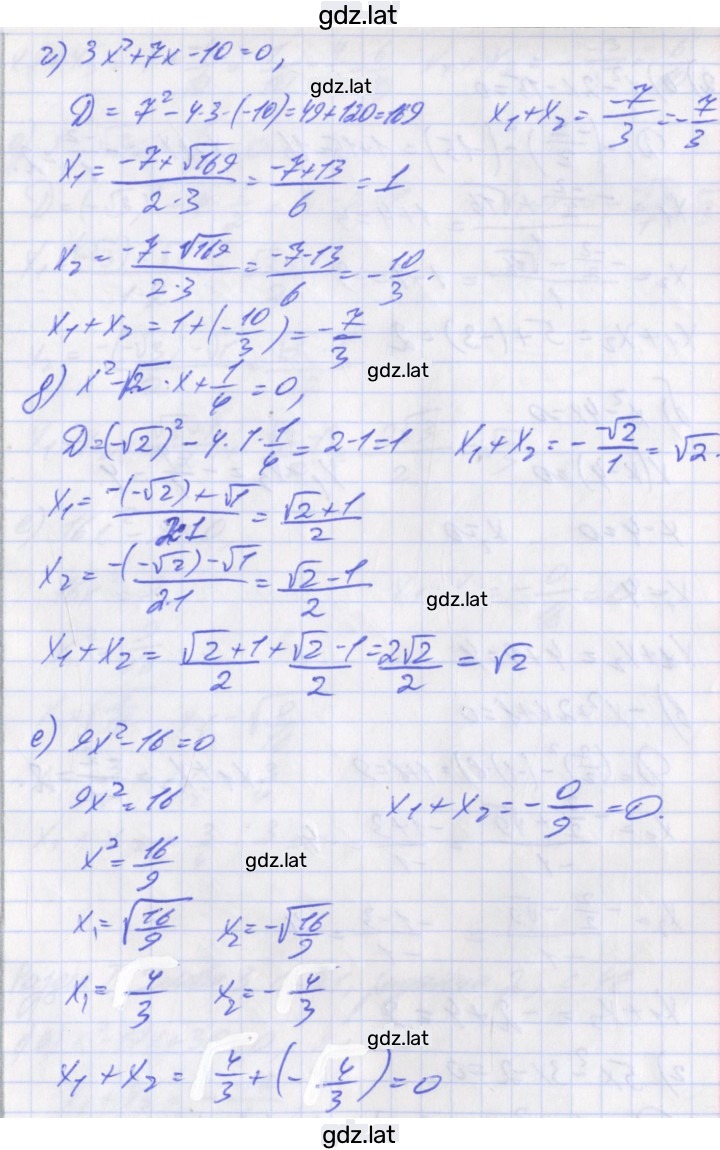 gdz.lat
г) 3x²+7x-10=0,
gdz.lat
D = 7² - 4·3·(-10) = 49+120=169
x₁+x₂ = -7/3 = -7/3
x₁ = (-7+√169)/(2·3) = (-7+13)/6 = 1
x₂ = (-7-√169)/(2·3) = (-7-13)/6 = -10/3.
x₁+x₂ = 1+(-10/3) = -7/3
gdz.lat
д) x²-√2·x+1/4=0,
D=(-√2)²-4·1·1/4=2-1=1
x₁+x₂ = - -√2/1 = √2.
x₁ = (-(-√2)+√1)/(2·1) = (√2+1)/2
x₂ = (-(-√2)-√1)/(2·1) = (√2-1)/2
gdz.lat
x₁+x₂ = (√2+1)/2 + (√2-1)/2 = 2√2/2 = √2
е) 9x²-16=0
9x²=16
x₁+x₂ = -0/9 = 0.
x²=16/9
gdz.lat
x₁=√16/9 x₂=-√16/9
x₁= 4/3 x₂=- 4/3
gdz.lat
x₁+x₂ = 4/3+(- 4/3)=0
gdz.lat